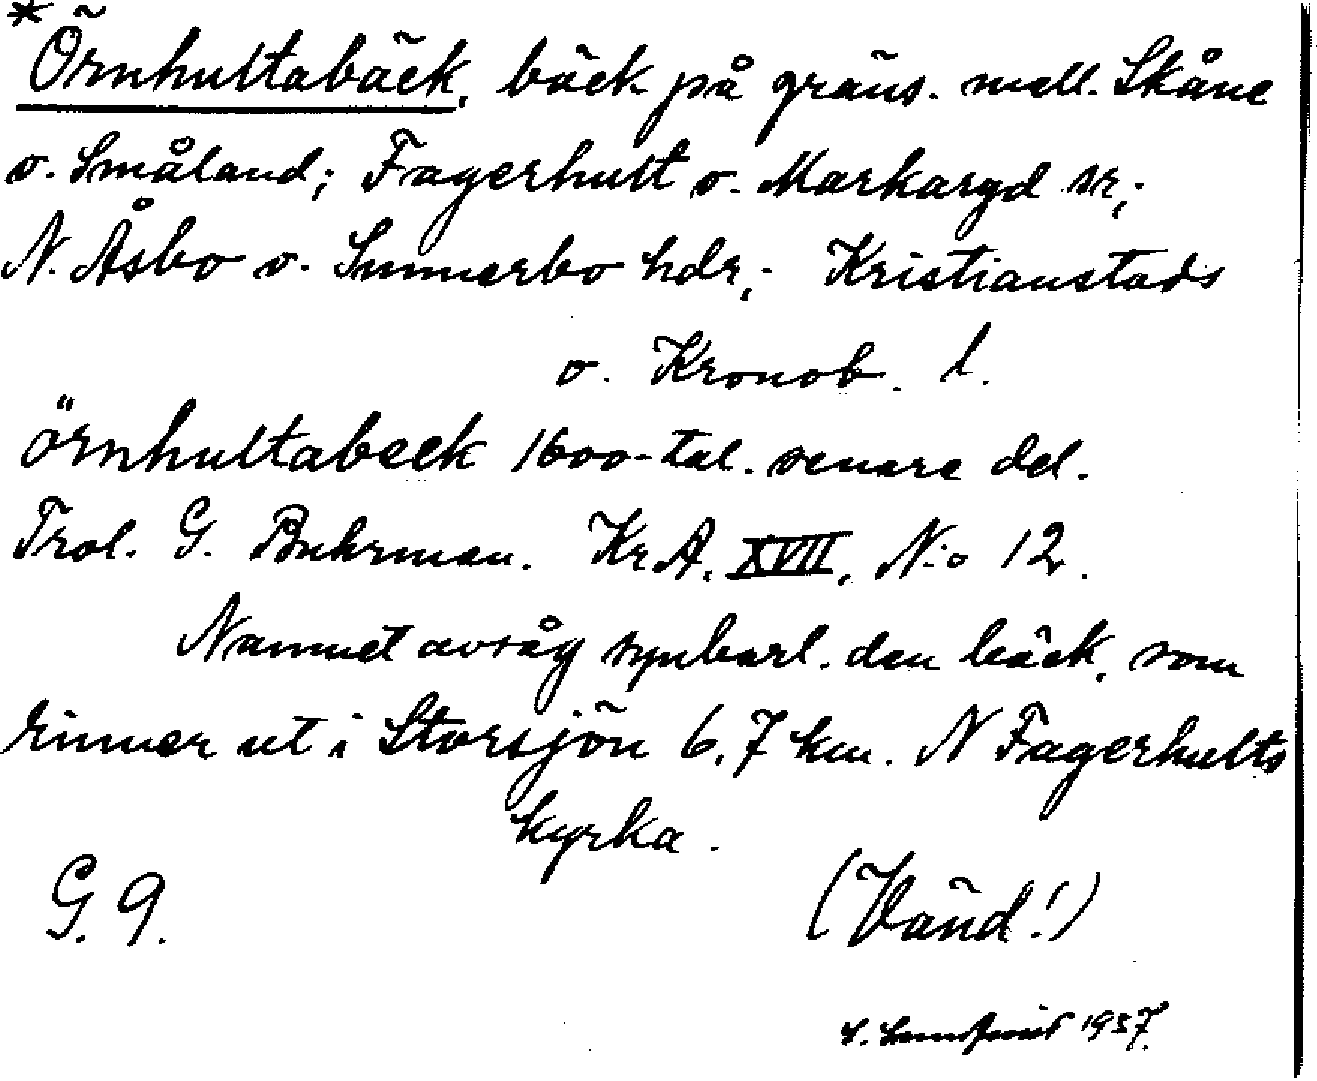 *Örnhultabäck, bäck på gräns. mell. Skåne
o. Småland; Fagerhult o. Markaryd sr;
N. Åsbo o. Sunnerbo hdr; Kristianstads
o. Kronob. l.
örnhultabeck 1600-tal. senare del.
Trol. G. Buhrman. Kr.A. XVII, N:o 12.
Namnet avsåg synbarl. den bäck, som
rinner ut i Storsjön 6,7 km. N Fagerhults
kyrka.
G. 9.
(Vänd!)
1937.